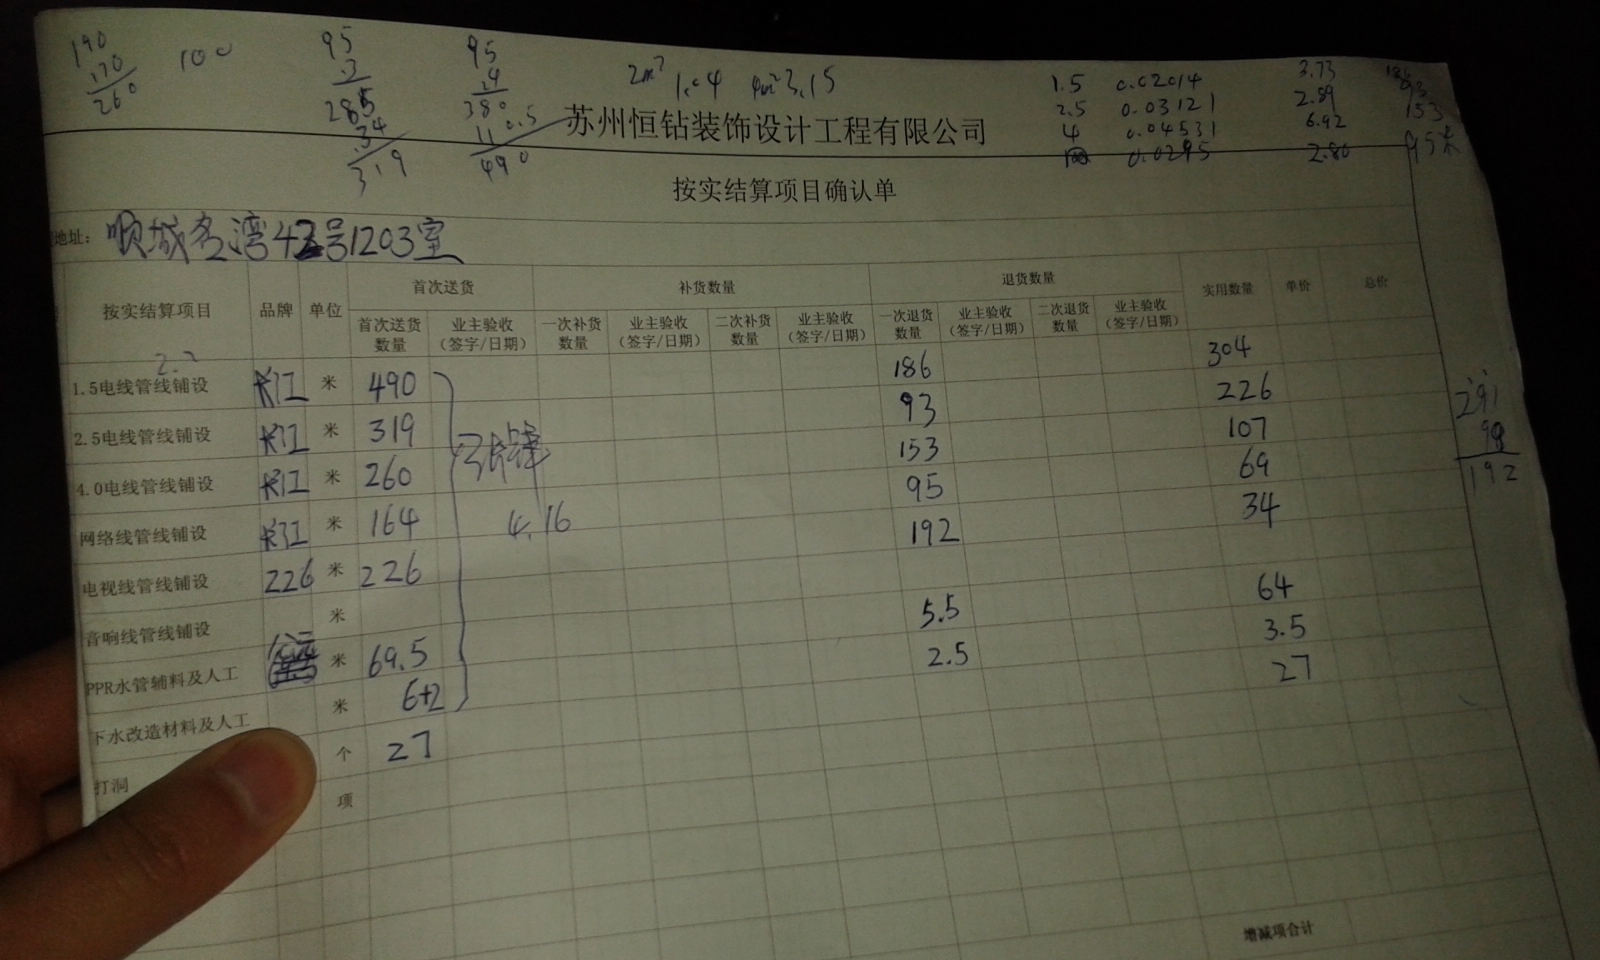 190
170
260
100
95
3
285
34
319
95
4
380
110.5
490
2m² 1.04 4m² 3.15
1.5 0.02014 3.73
2.5 0.03121 2.89
4 0.04531 6.92
0.0295 2.80
186
93
153
95米
苏州恒钻装饰设计工程有限公司
按实结算项目确认单
地址：顺城名湾42号1203室
按实结算项目 品牌 单位 首次送货 补货数量 退货数量 实用数量 单价 总价
首次送货数量 业主验收（签字/日期） 一次补货数量 业主验收（签字/日期） 二次补货数量 业主验收（签字/日期） 一次退货数量 业主验收（签字/日期） 二次退货数量 业主验收（签字/日期）
2.2
1.5电线管线铺设 长江 米 490 186 304
2.5电线管线铺设 长江 米 319 93 226
4.0电线管线铺设 长江 米 260 153 107
网络线管线铺设 长江 米 164 95 69
电视线管线铺设 226 米 226 192 34
4.16
音响线管线铺设 米
PPR水管辅料及人工 米 69.5 5.5 64
下水改造材料及人工 米 6+2 2.5 3.5
打洞 个 27 27
项
291
99
192
增减项合计